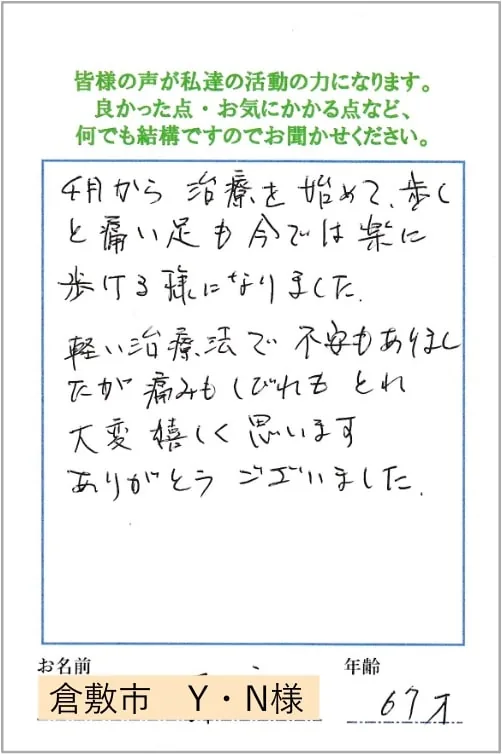 皆様の声が私達の活動の力になります。
良かった点・お気にかかる点など、
何でも結構ですのでお聞かせください。
4月から 治療を始めて、歩く
と痛い足も今では楽に
歩ける様になりました.
軽い治療法で 不安もありまし
たが 痛みもしびれも とれ
大変 嬉しく 思います
ありがとう ございました.
お名前
年齢
倉敷市 Y・N様
67才